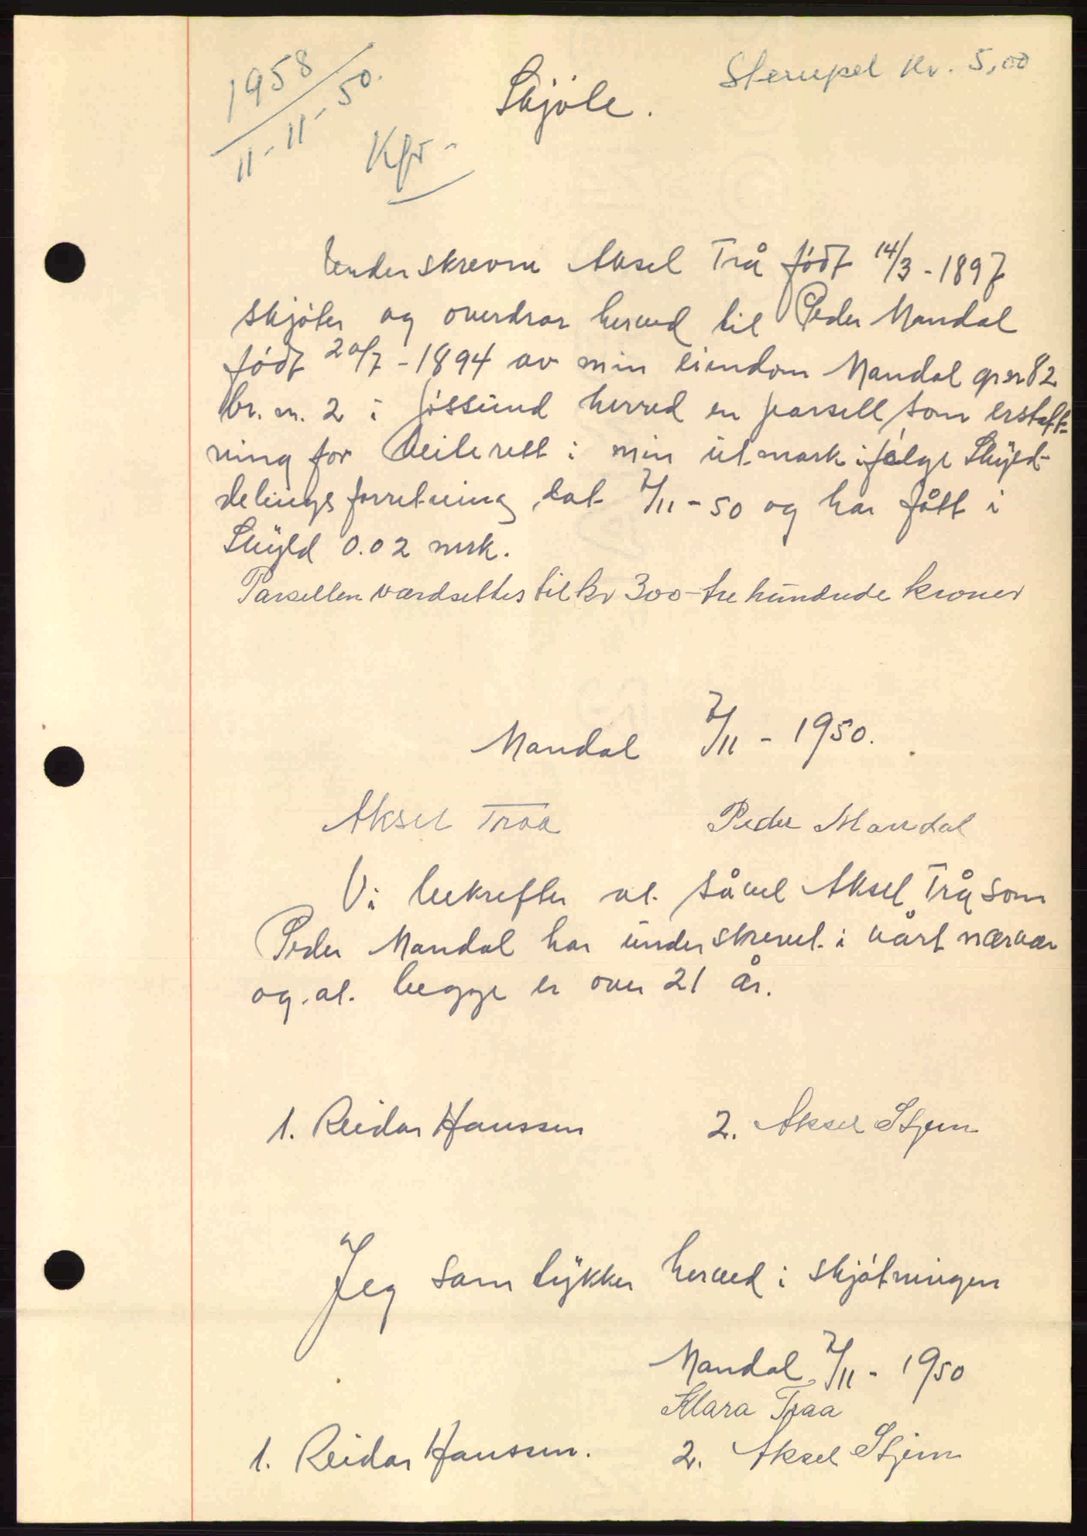 1958
11-11-50.
Kfr-
Stempel kr. 5,00
Skjöte.
Underskrevne Aksel Trå födt 14/3-1897
skjöter og overdrar herved til Peder Mandal
födt 20/7-1894 av min eiendom Mandal gr.nr 82
br.nr. 2 i Jössund herred en parsell som erstatt-
ning for beiterett i min utmark ifölge Skyld-
delingsforretning dat 7/11-50 og har fått i
Skyld 0.02 mrk.
Parsellen værdsettes til kr 300-tre hundrede kroner
Mandal 7/11-1950.
Aksel Traa
Peder Mandal
Vi bekrefter at såvel Aksel Trå som
Peder Mandal har underskrevet i vårt nærvær
og at begge er over 21 år.
1. Reidar Hanssen
2. Aksel Stjern
Jeg samtykker herved i skjötningen
Mandal 7/11-1950
Klara Traa
1. Reidar Hanssen.
2. Aksel Stjern